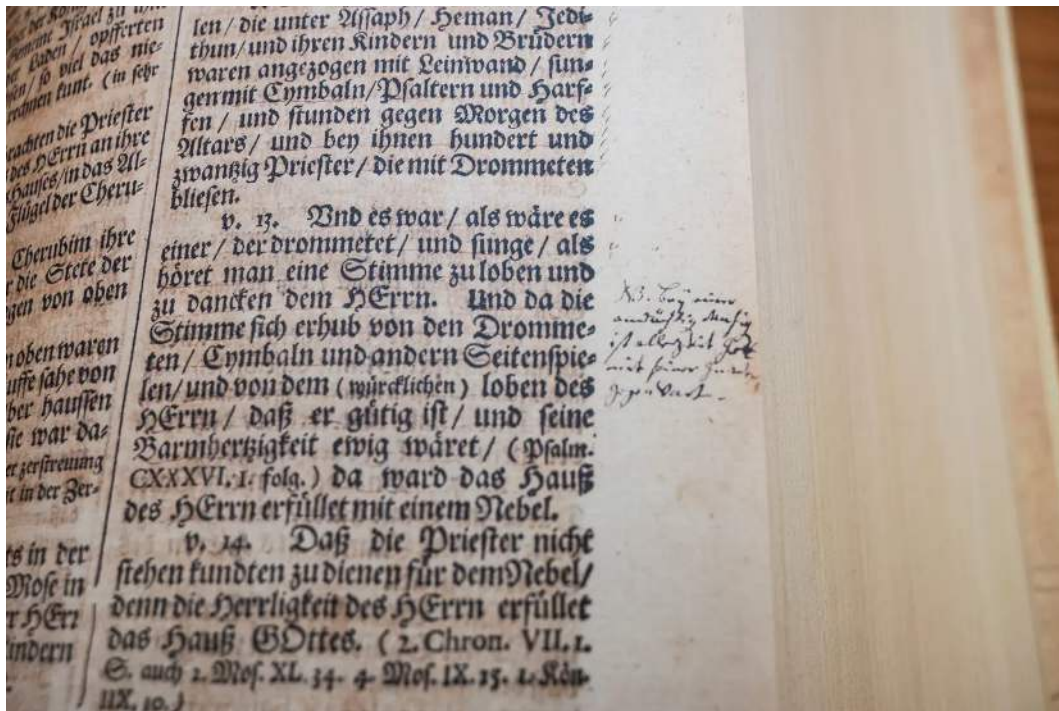 der Kön
Gemeine Israel zu
Laden / opfferten
/ so viel das nie-
rechnen kunt. (in sehr
rachten die Priester
des HErrn an ihre
Hauses / in das Al-
Flügel der Cheru-
Cherubim ihre
die Stete der
gen von oben
oben waren
uffe sahe von
ber haussen
sie war da-
er zerstreuung
t in der Zer-
ts in der
Mose in
r HErr
indern
len / die unter Assaph / Heman / Jedi-
thun / und ihren Kindern und Brüdern
waren angezogen mit Leinwand / sun-
gen mit Cymbaln / Psaltern und Harf-
fen / und stunden gegen Morgen des
Altars / und bey ihnen hundert und
zwantzig Priester / die mit Drommeten
bliesen.
v. 13. Vnd es war / als wäre es
einer / der drommetet / und sunge / als
höret man eine Stimme zu loben und
zu dancken dem HErrn. Und da die
Stimme sich erhub von den Dromme-
ten / Cymbaln und andern Seitenspie-
len / und von dem (würcklichen) loben des
HErrn / daß er gütig ist / und seine
Barmhertzigkeit ewig wäret / (Psalm.
CXXXVI. 1. folg.) da ward das Hauß
des HErrn erfüllet mit einem Nebel.
v. 14. Daß die Priester nicht
stehen kundten zu dienen für dem Nebel /
denn die Herrligkeit des HErrn erfüllet
das Hauß GOttes. (2. Chron. VII. 1.
S. auch 2. Mos. XL. 34. 4. Mos. IX. 15. 1. Kön.
IIX. 10.)
NB. Bey einer
andächtigen Musiq
ist allezeit Gott
mit seiner Gnaden
Gegenwart.